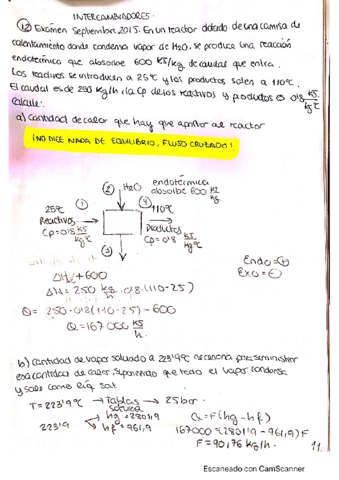 INTERCAMBIADORES.
12 Exámen Septiembre 2015. En un reactor dotado de una camisa de
calentamiento donde condensa vapor de H2O, se produce una reacción
endotérmica que absorbe 600 KJ/kg de caudal que entra.
Los reactivos se introducen a 25ºC y los productos salen a 110ºC.
El caudal es de 250 kg/h, la Cp de los reactivos y productos es 0'8 KJ/kgºC
Calcule:
a) Cantidad de calor que hay que aportar al reactor
¡NO DICE NADA DE EQUILIBRIO, FLUJO CRUZADO!
② H2O endotérmica
absorbe 600 KJ/kg
25ºC ① ④ 110ºC
Reactivos Productos
Cp=0'8 KJ/kgºC Cp=0'8 KJ/kgºC
③
Endo=⊕
Exo=⊖
+600
250 kg/h · 0'8 · (110-25)
Q = 250·0'8(110-25)-600
Q=167000 KJ/h.
b) Cantidad de vapor saturado a 223'9ºC necesaria para suministrar
esa cantidad de calor, suponiendo que todo el vapor condensa
y sale como líq. sat.
T=223'9ºC → Tablas → 25 bar.
223'9 → hg = 2801'9
→ hf = 961,9
Q=F(hg-hf)
167000=(2801'9-961,9)F
F=90,76 kg/h.
11
Escaneado con CamScanner